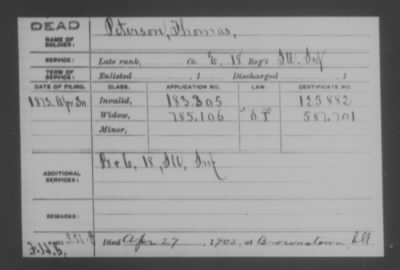 DEAD
NAME OF SOLDIER: Peterson, Thomas,
SERVICE: Late rank, Co. E, 18 Reg't Ill. Inf
TERM OF SERVICE: Enlisted , 1 Discharged , 1
DATE OF FILING. CLASS. APPLICATION NO. LAW. CERTIFICATE NO.
1873. Apr 30 Invalid, 183.305 125.882
Widow, 785.106 587.701
Minor,
ADDITIONAL SERVICES: 18, Ill, Inf
REMARKS:
Died Apr 27, 1903, at Brownstown, Ill